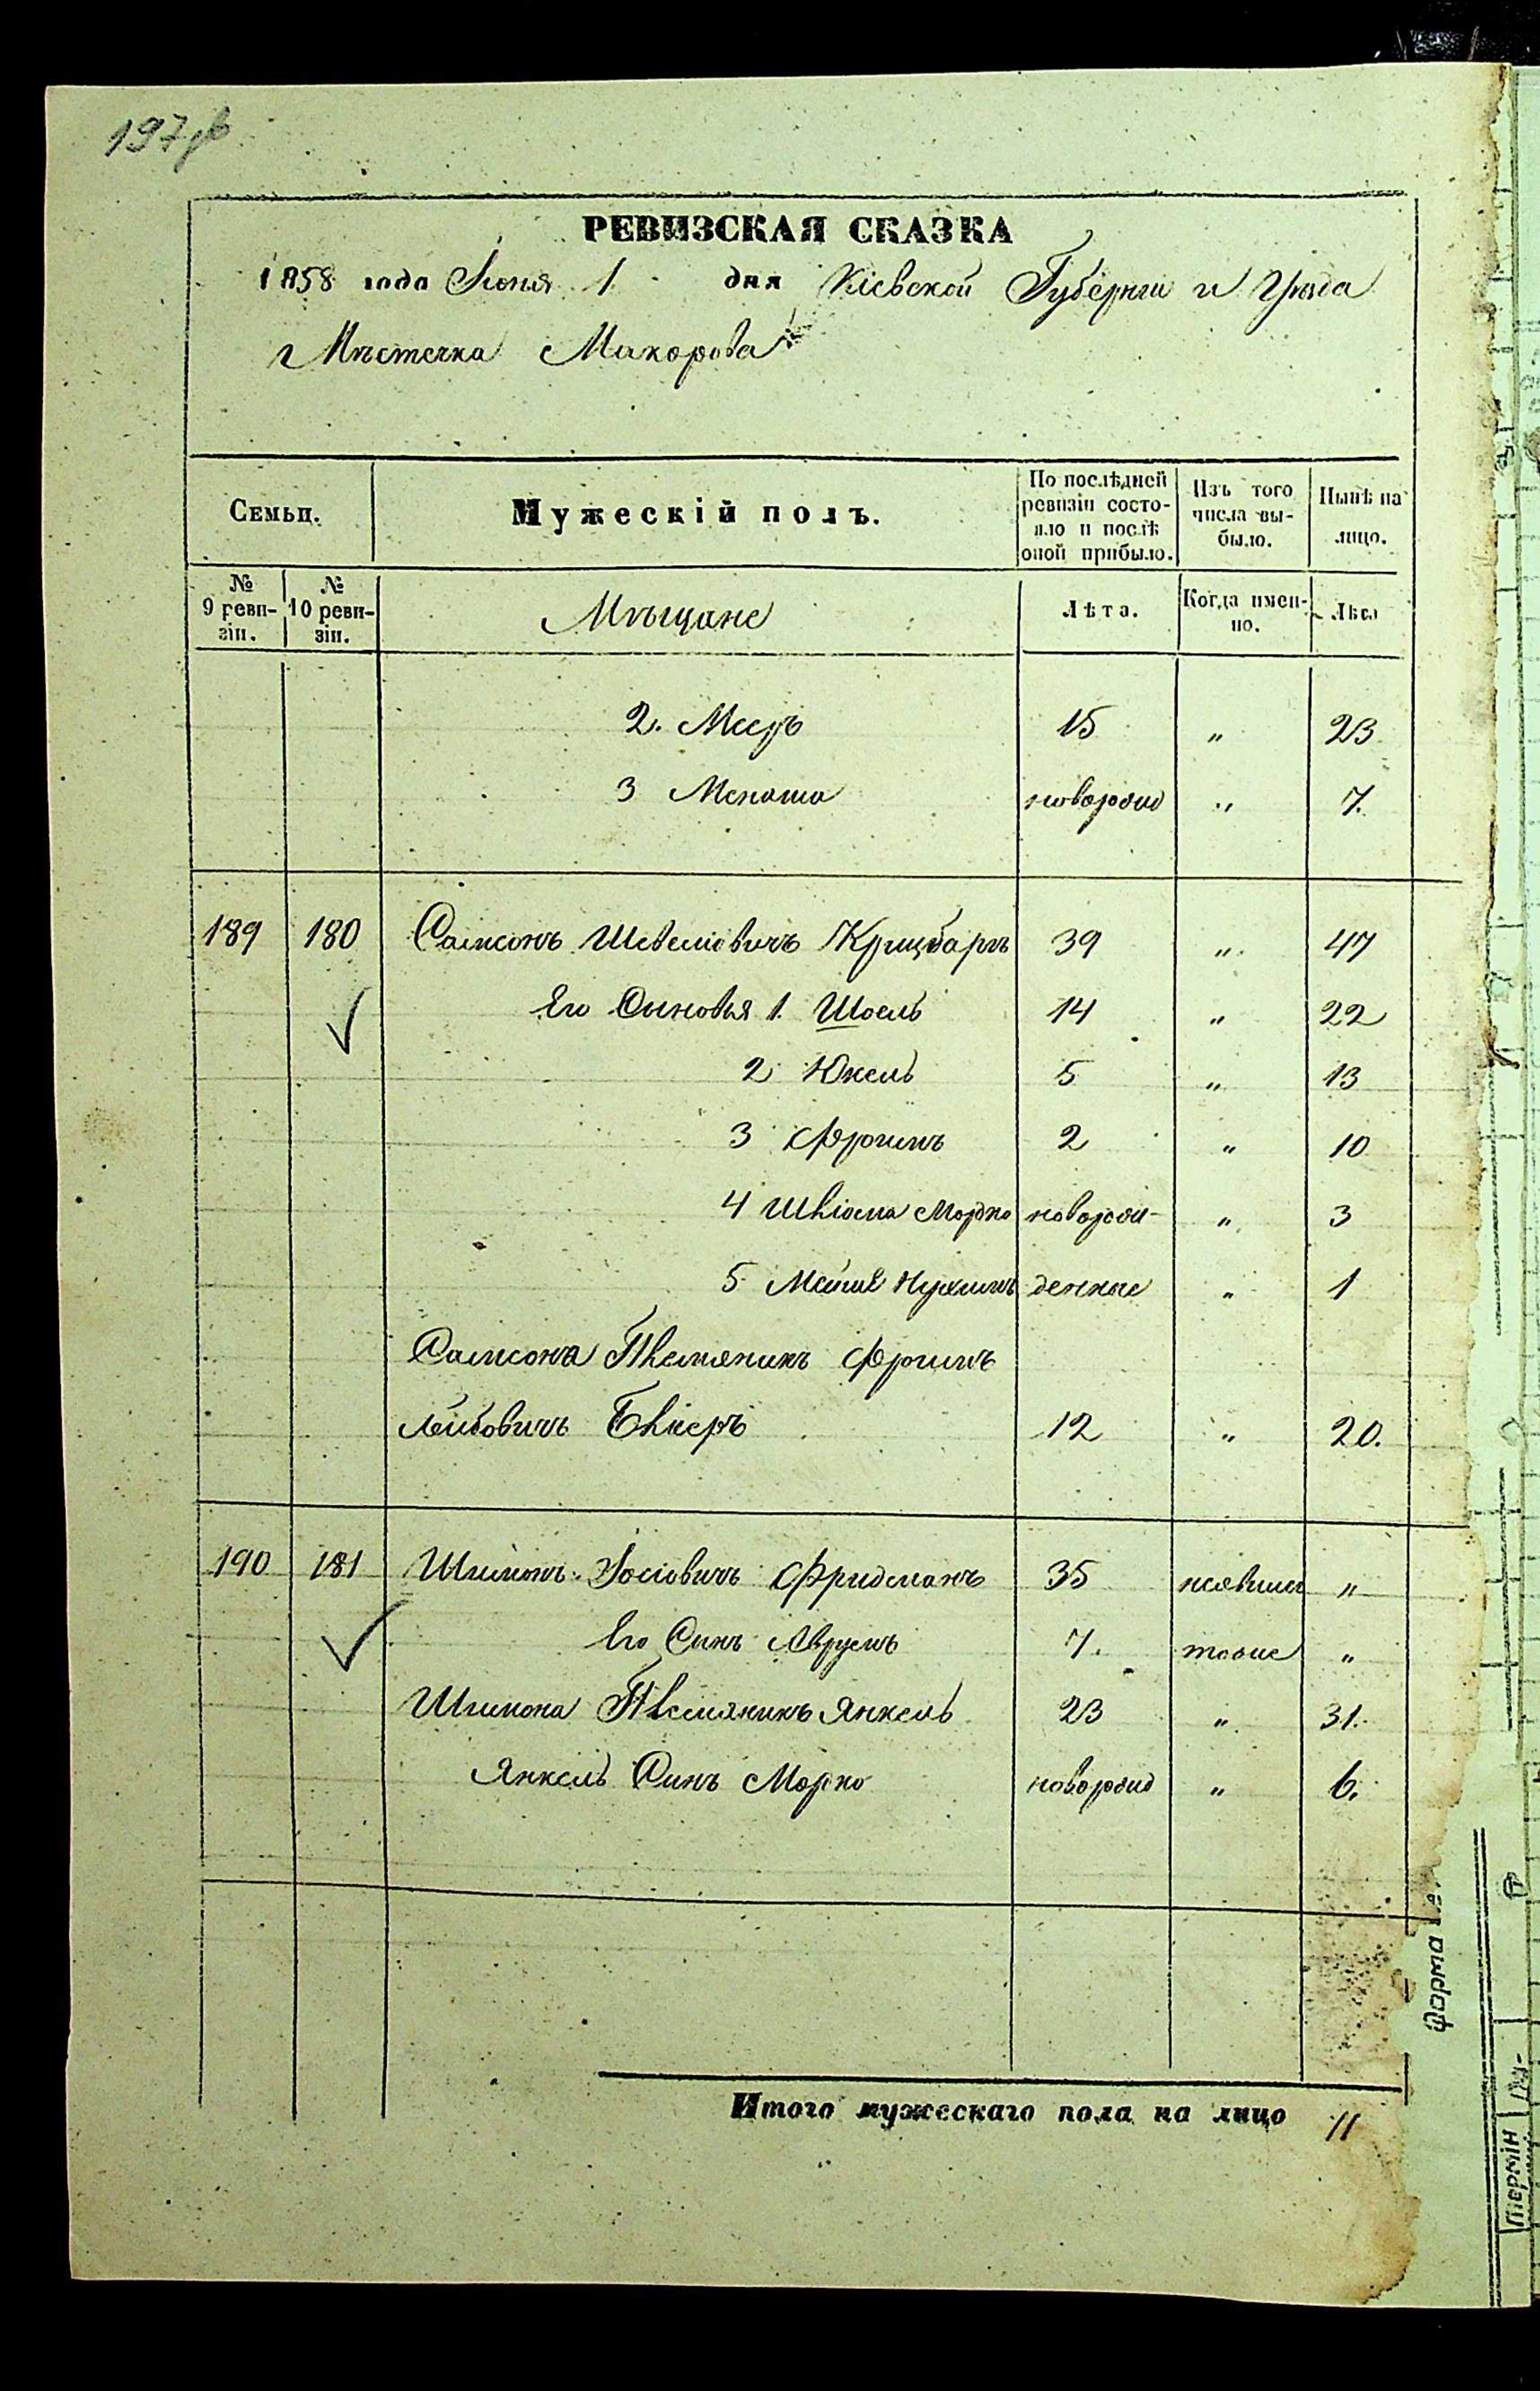 197
РЕВИЗСКАЯ СКАЗКА
1858 года Іюня 1 дня Кіевской Губерніи и Уѣзда
Мѣстечка Макарова
Семьи.
Мужескій полъ.
По послѣдней ревизіи состояло и послѣ оной прибыло.
Изъ того числа выбыло.
Нынѣ на лицо.
№ 9 ревизіи.
№ 10 ревизіи.
Мѣщане
Лѣта.
Когда именно.
Лѣта
2. Мееръ 15 " 23
3 Менаша новорожд " 7.
189 180 Самсонъ 39 " 47
Его Сыновья 1. Шоель 14 " 22
2 Юкель 5 " 13
3 Фроимъ 2 " 10
4 Шліома Мордко новорож- " 3
5 денные " 1
Самсона Племяникъ Фроимъ
Лейбовичъ 12 " 20.
190 181 Шимонъ Іосіовичъ Фридманъ 35 "
Его Синъ Аврумъ 7. тоже "
Шимона Племяникъ Янкель 23 " 31.
Янкель Синъ Морко новорожд " 6.
Итого мужескаго пола на лицо 11
форма
Термін